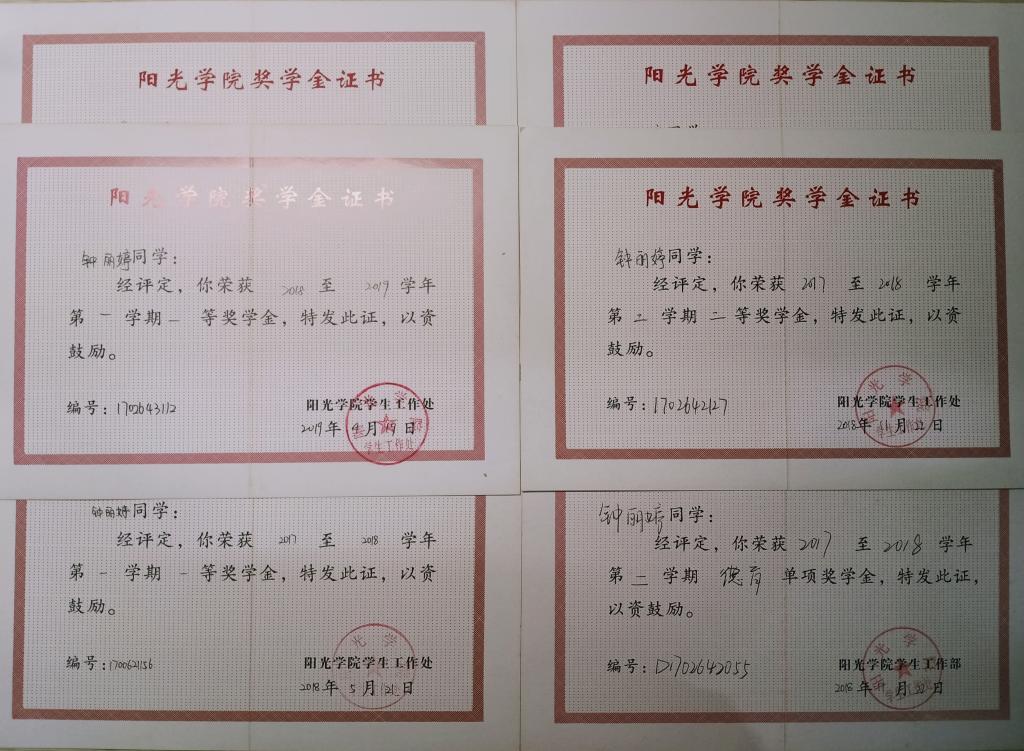 阳光学院奖学金证书
阳光学院奖学金证书
阳光学院奖学金证书
钟丽婷同学：
经评定，你荣获 2018 至 2019 学年
第 一 学期 二 等奖学金，特发此证，以资
鼓励。
编号：1702643112
阳光学院学生工作处
2019 年 4 月 19 日
学生工作处
阳光学院奖学金证书
钟丽婷同学：
经评定，你荣获 2017 至 2018 学年
第 二 学期 二 等奖学金，特发此证，以资
鼓励。
编号：1702642127
阳光学院学生工作处
2018 年 11 月 22 日
钟丽婷同学：
经评定，你荣获 2017 至 2018 学年
第 一 学期 一 等奖学金，特发此证，以资
鼓励。
编号：1700621156
阳光学院学生工作处
2018 年 5 月 21 日
钟丽婷同学：
经评定，你荣获 2017 至 2018 学年
第 二 学期 德育 单项奖学金，特发此证，
以资鼓励。
编号：D1702642055
阳光学院学生工作部
2018 年 11 月 22 日